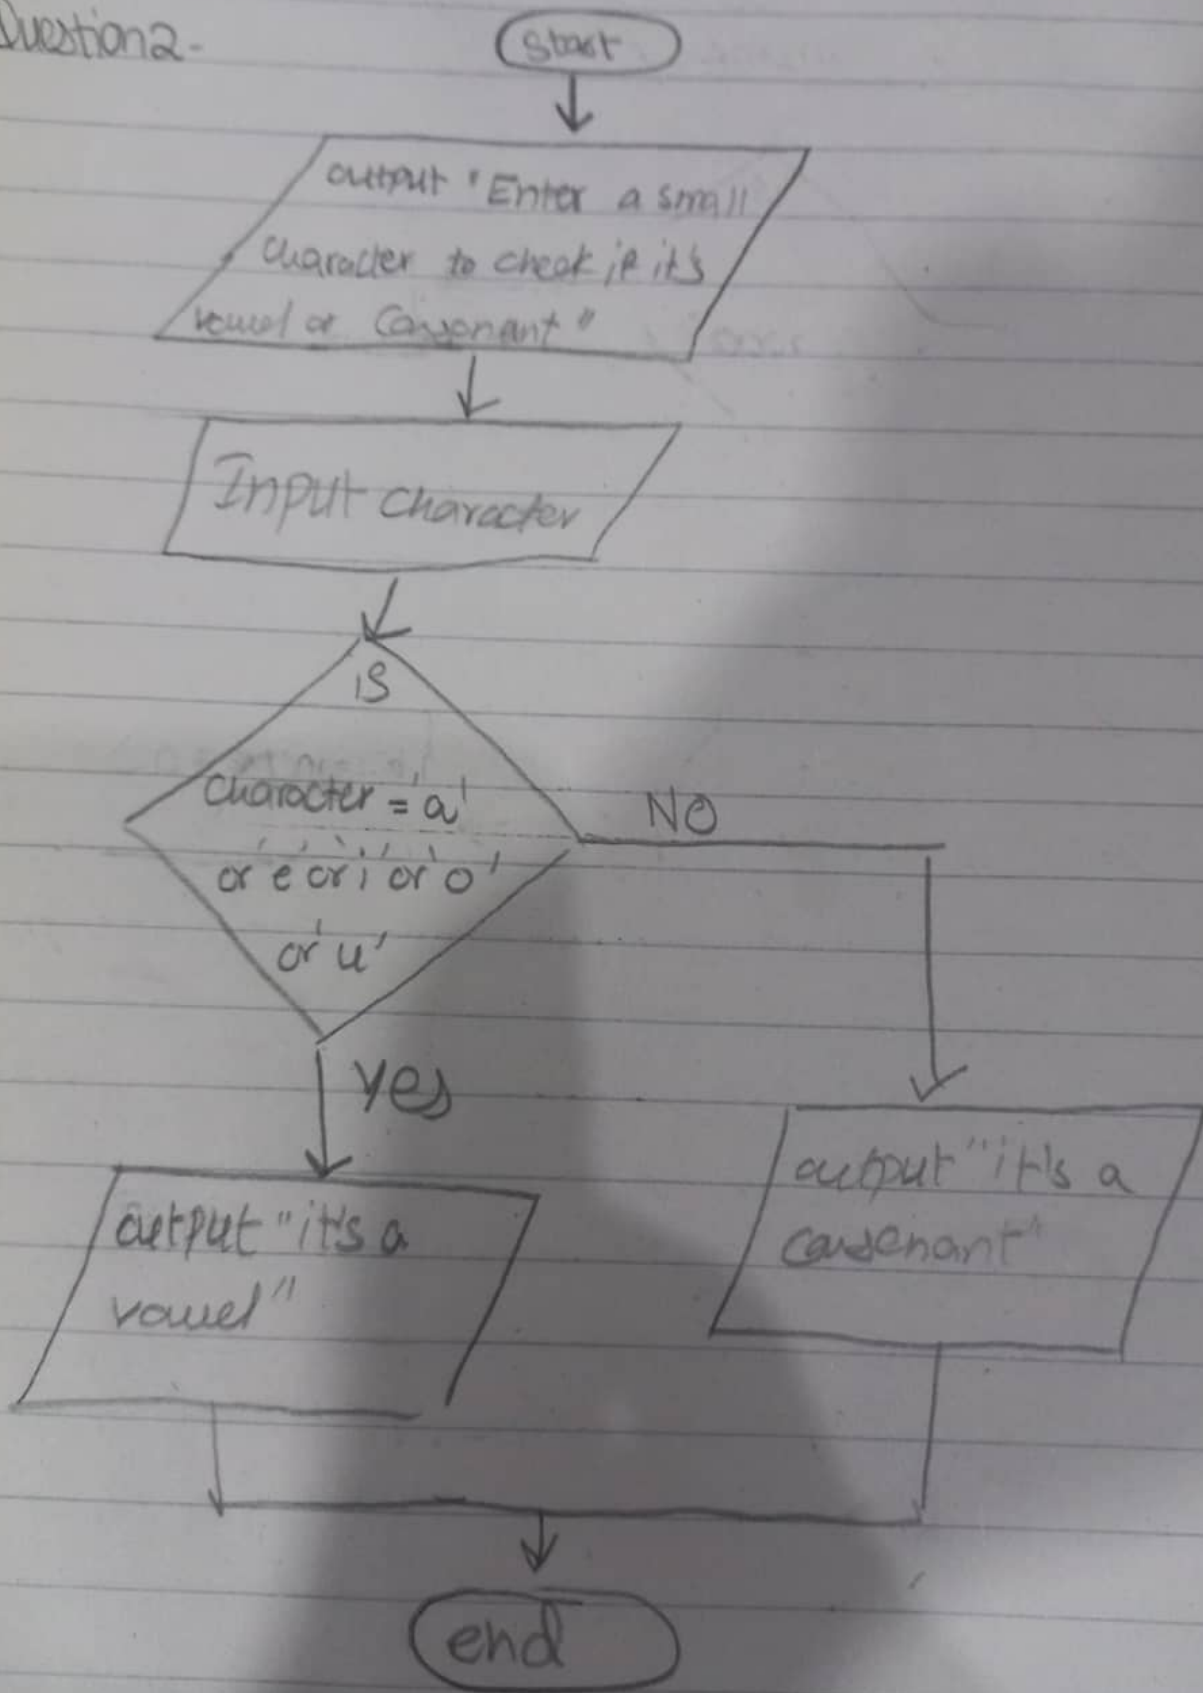 Question 2-
Start
output "Enter a small
character to check if it's
vowel or Consonant"
Input character
is
character = 'a'
or 'e' or 'i' or 'o'
or 'u'
NO
yes
output "it's a
consenant"
output "it's a
vowel"
end